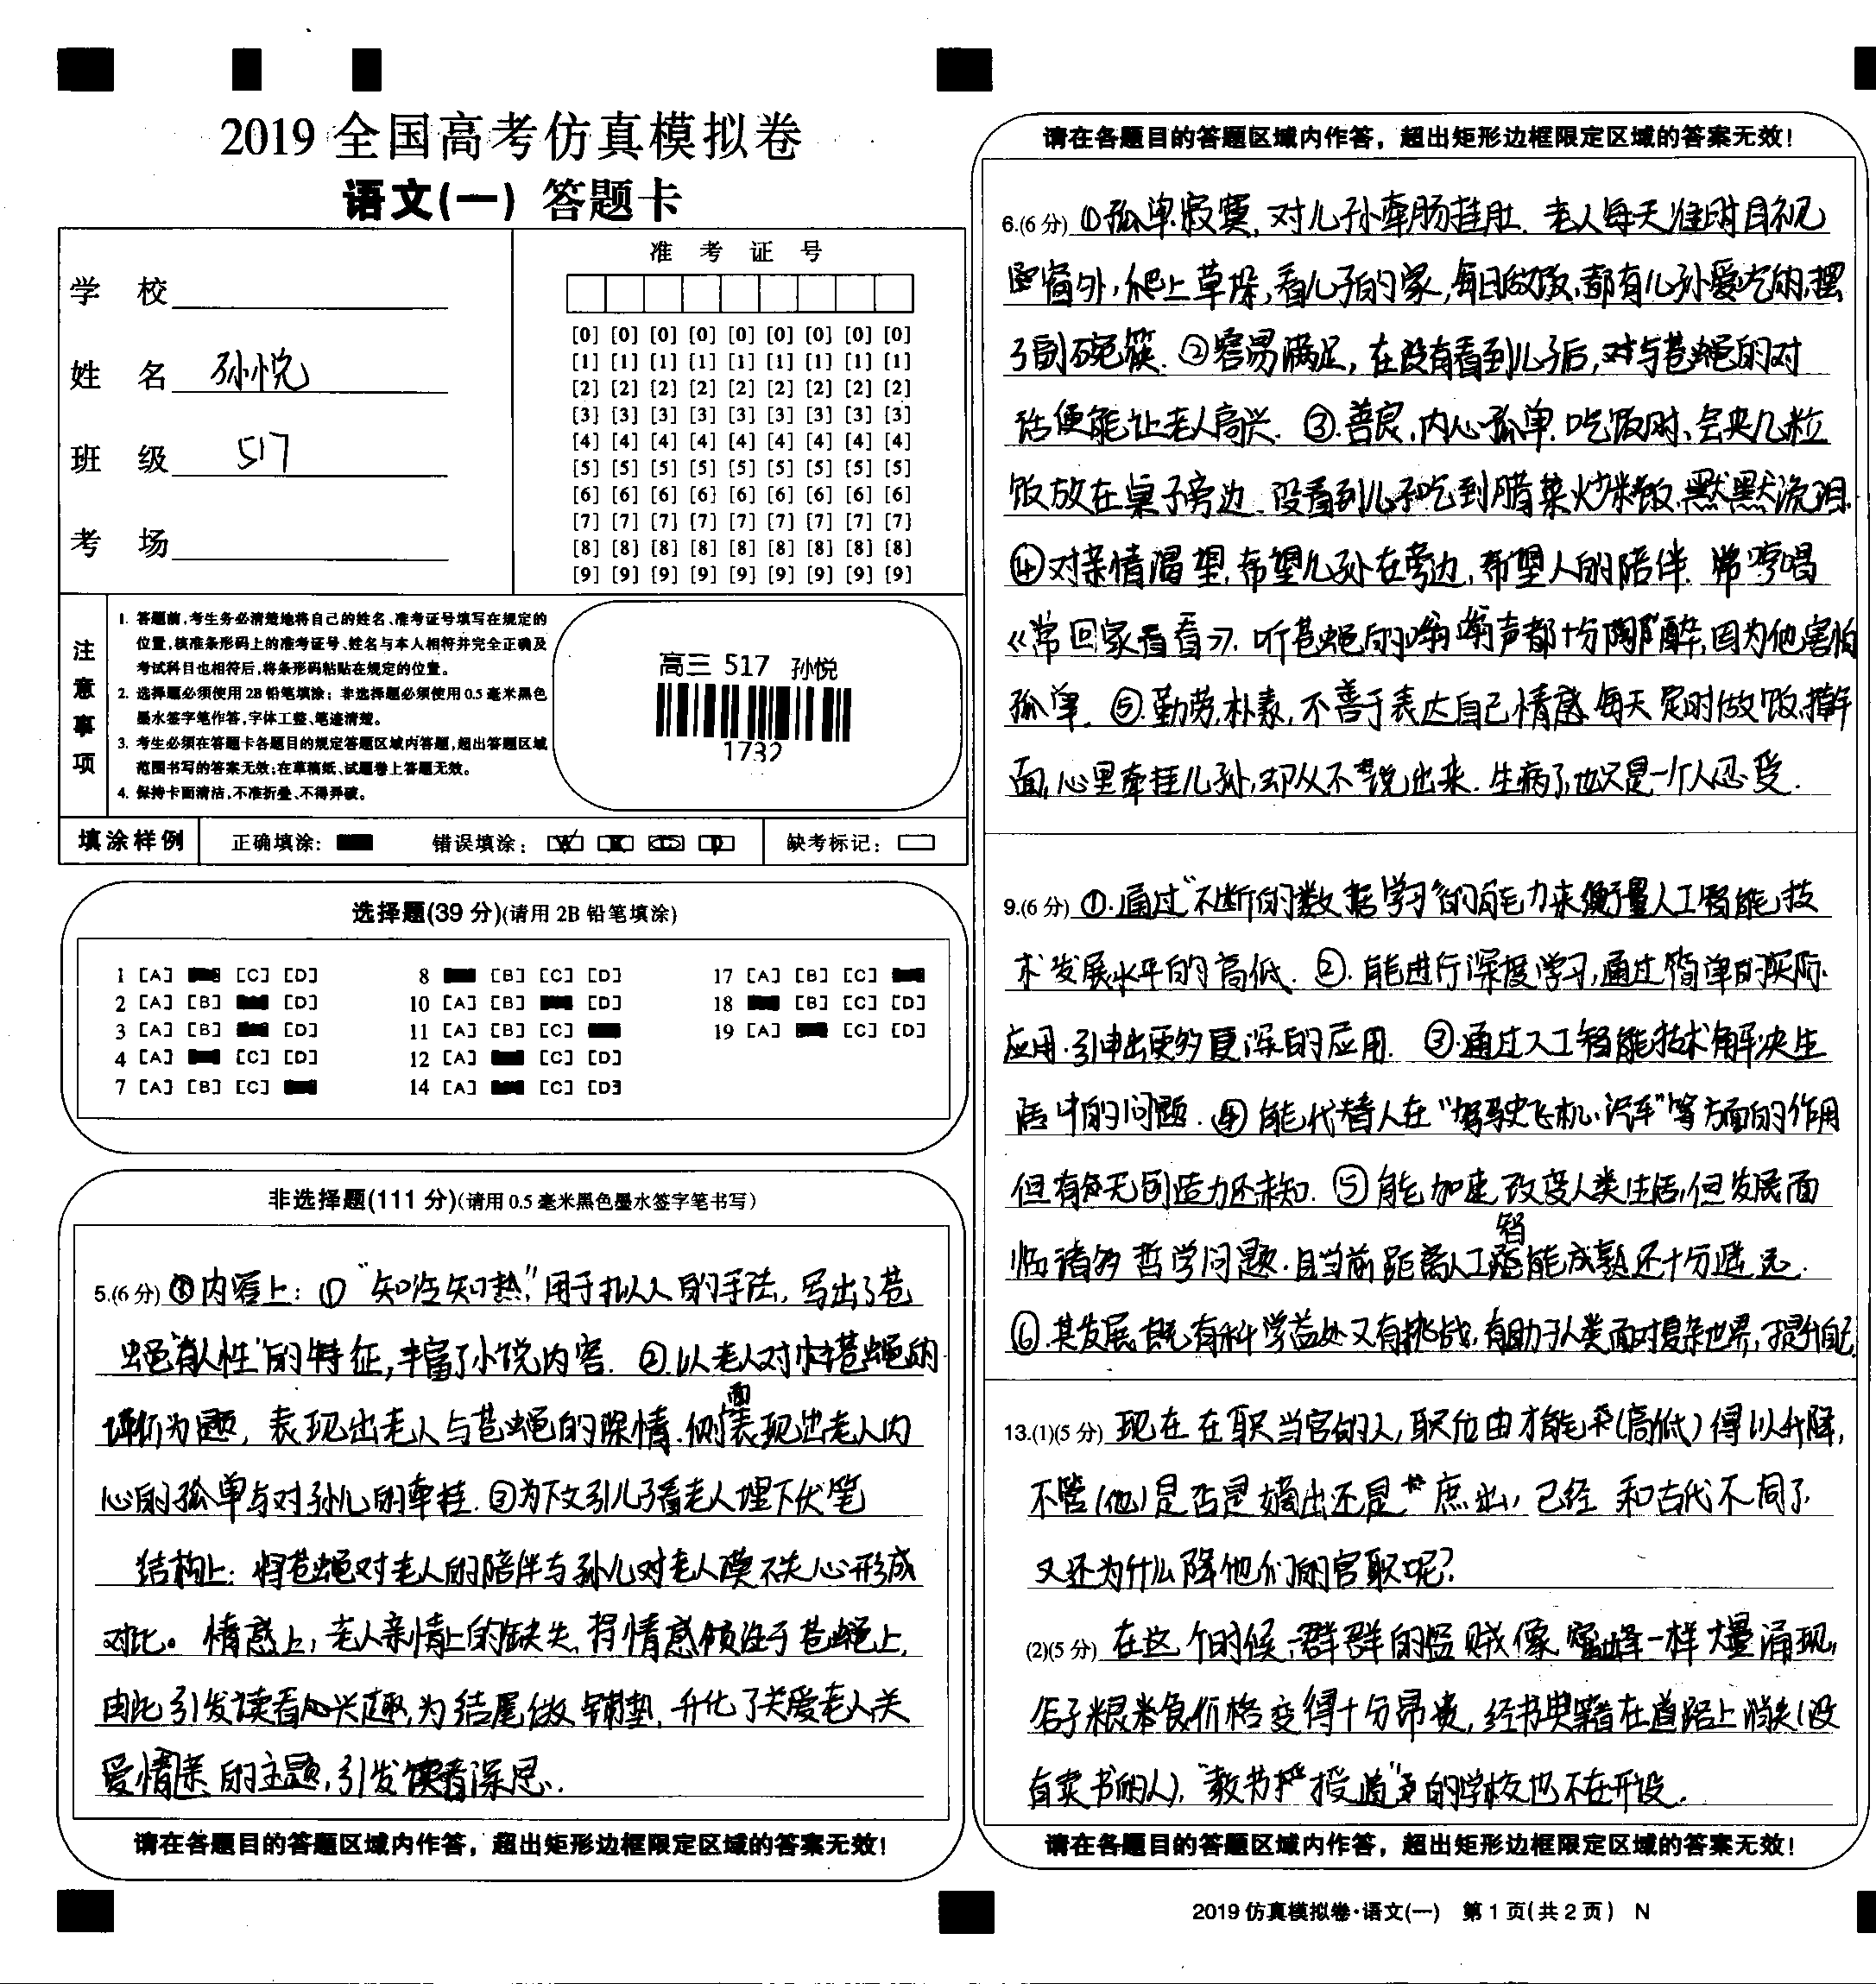 2019 全国高考仿真模拟卷
语文(一) 答题卡
学 校
姓 名 孙悦
班 级 517
考 场
准 考 证 号
[0] [0] [0] [0] [0] [0] [0] [0] [0]
[1] [1] [1] [1] [1] [1] [1] [1] [1]
[2] [2] [2] [2] [2] [2] [2] [2] [2]
[3] [3] [3] [3] [3] [3] [3] [3] [3]
[4] [4] [4] [4] [4] [4] [4] [4] [4]
[5] [5] [5] [5] [5] [5] [5] [5] [5]
[6] [6] [6] [6] [6] [6] [6] [6] [6]
[7] [7] [7] [7] [7] [7] [7] [7] [7]
[8] [8] [8] [8] [8] [8] [8] [8] [8]
[9] [9] [9] [9] [9] [9] [9] [9] [9]
注意事项
1. 答题前,考生务必清楚地将自己的姓名、准考证号填写在规定的
位置,核准条形码上的准考证号、姓名与本人相符并完全正确及
考试科目也相符后,将条形码粘贴在规定的位置。
2. 选择题必须使用2B铅笔填涂；非选择题必须使用0.5毫米黑色
墨水签字笔作答,字体工整、笔迹清楚。
3. 考生必须在答题卡各题目的规定答题区域内答题,超出答题区域
范围书写的答案无效;在草稿纸、试题卷上答题无效。
4. 保持卡面清洁,不准折叠、不得弄破。
高三 517 孙悦
1732
填涂样例 正确填涂: 错误填涂: 缺考标记:
选择题(39 分)(请用 2B 铅笔填涂)
1 [A] [C] [D] 8 [B] [C] [D] 17 [A] [B] [C]
2 [A] [B] [D] 10 [A] [B] [D] 18 [B] [C] [D]
3 [A] [B] [D] 11 [A] [B] [C] 19 [A] [C] [D]
4 [A] [C] [D] 12 [A] [C] [D]
7 [A] [B] [C] 14 [A] [C] [D]
非选择题(111 分)(请用 0.5 毫米黑色墨水签字笔书写)
5.(6 分) 内容上: ① "知冷知热"用于拟人的手法, 写出了苍
蝇"有人性"的特征,丰富了小说内容. ②以老人对苍蝇的
评价为题, 表现出老人与苍蝇的深情.侧面表现出老人内
心的孤单与对孙儿的牵挂. ③为下文引儿子看老人埋下伏笔
结构上: 将苍蝇对老人的陪伴与孙儿对老人漠不关心形成
对比。情感上, 老人亲情上的缺失, 将情感倾注于苍蝇上,
由此引发读者兴趣,为结尾做铺垫, 升化了关爱老人关
爱情亲的主题,引发读者深思.
请在各题目的答题区域内作答，超出矩形边框限定区域的答案无效!
请在各题目的答题区域内作答，超出矩形边框限定区域的答案无效!
6.(6 分) ①孤单寂寞, 对儿孙牵肠挂肚. 老人每天准时目视
窗外,爬上草垛,看儿子的家,每日做饭,都有儿孙爱吃的,摆
了副碗筷. ②容易满足, 在没有看到儿子后,与苍蝇的对
话便能让老人高兴. ③.善良,内心孤单. 吃饭时、会夹几粒
饭放在桌子旁边. 没看到儿子吃到腊菜炒米饭,默默流泪.
④对亲情渴望,希望儿孙在旁边,希望人的陪伴. 常哼唱
《常回家看看》. 听苍蝇的嗡嗡声都十分陶醉,因为他害怕
孤单. ⑤.勤劳朴素, 不善于表达自己情感.每天定时做饭,擀
面,心里牵挂儿孙,却从不说出来. 生病了,也只是一个人忍受.
9.(6 分) ①.通过"不断的数据学习"的能力来衡量人工智能技
术发展水平的高低. ②.能进行深度学习,通过简单的实际
应用.引申出更多更深的应用. ③.通过人工智能技术解决生
活中的问题. ④能代替人在"驾驶飞机·汽车"等方面的作用
但有无创造力还未知. ⑤能加速改变人类生活,但发展面
临诸多哲学问题.且当前距离人工智能成熟还十分遥远.
⑥.其发展既有科学益处又有挑战,有助于人类面对复杂世界,提升自己.
13.(1)(5 分) 现在在职当官的人,职位由才能(高低)得以升降,
不管(他)是否是嫡出还是庶出, 已经和古代不同了,
又还为什么降他们的官职呢?
(2)(5 分) 在这个时候,群群的盗贼像蜜蜂一样大量涌现,
谷子粮食价格变得十分昂贵, 经书典籍在道路上消失(没
有卖书的人), "教书授道"的学校也不在开设.
请在各题目的答题区域内作答，超出矩形边框限定区域的答案无效!
2019 仿真模拟卷·语文(一) 第 1 页(共 2 页) N